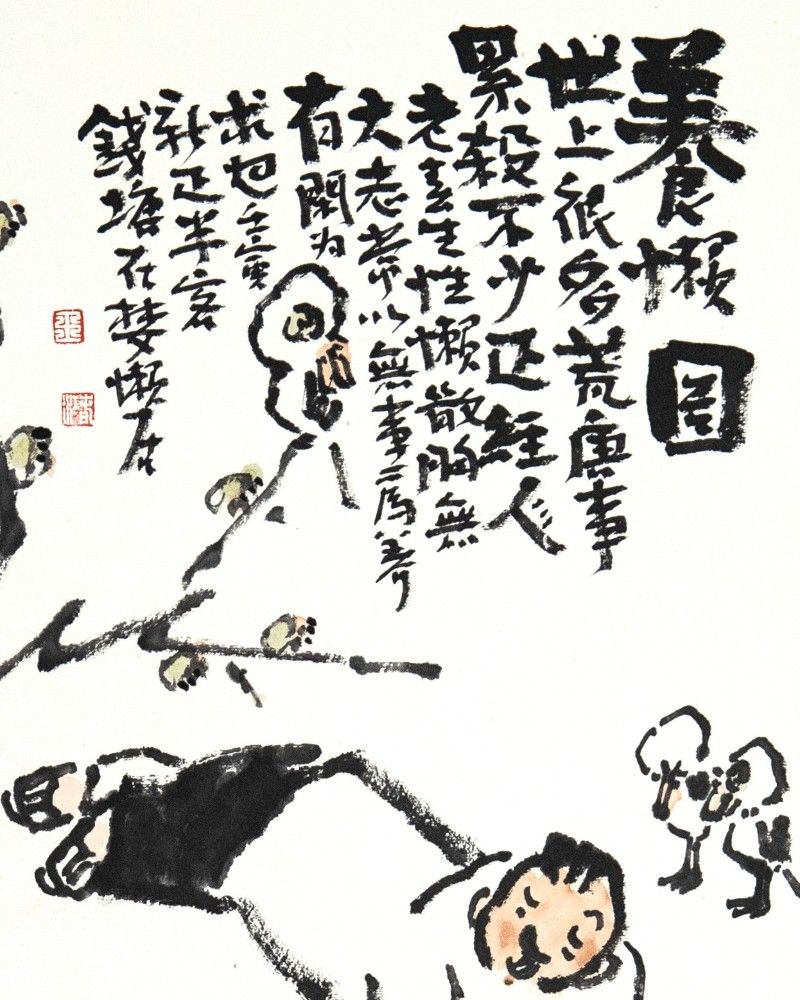 養懶圖
世上很多荒唐事
累殺不少正經人
老青生性懶散胸無
大志常以無事為
有閑为
求也壬寅
新正半
錢塘在梦懶居